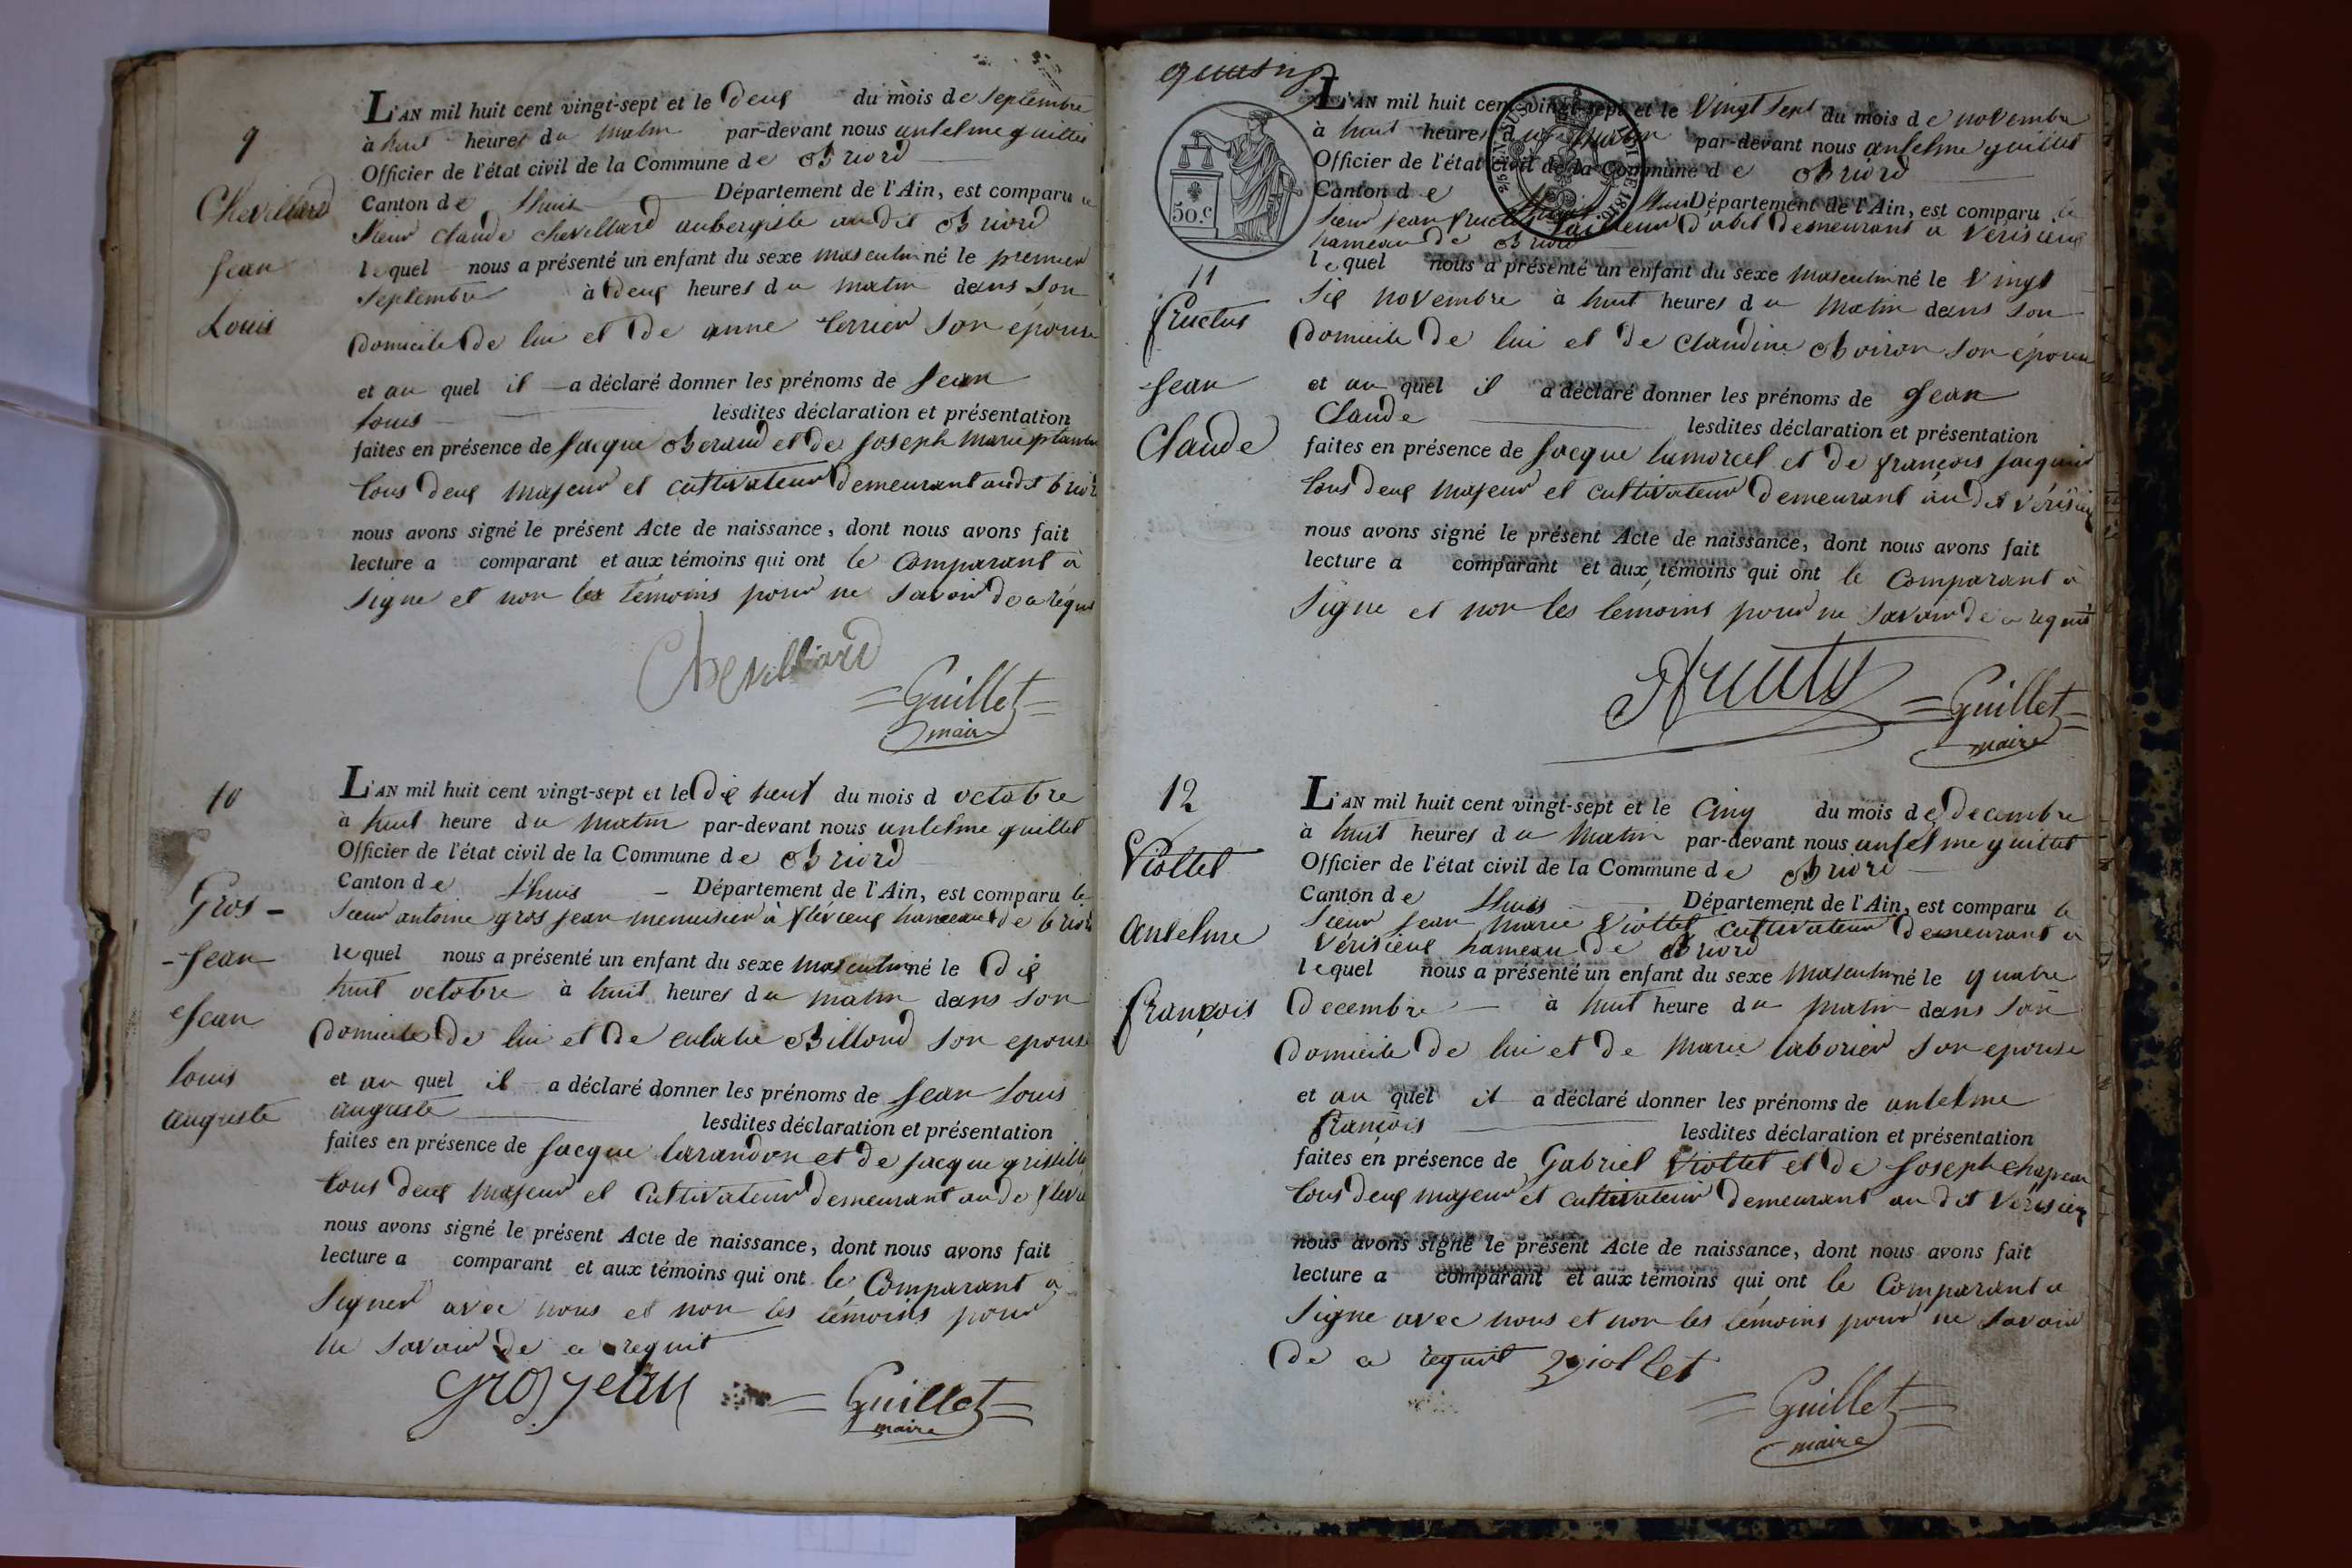 9
Chevillard
Jean
Louis
L'AN mil huit cent vingt-sept et le deux du mois de septembre
à huit heures du matin par-devant nous antelme guillet
Officier de l'état civil de la Commune de Briord
Canton de Lhuis Département de l'Ain, est comparu le
sieur claude chevillard aubergiste au dit Briord
lequel nous a présenté un enfant du sexe masculin né le premier
septembre à deux heures du matin dans son
domicile de lui et de anne terrier son épouse
et au quel il a déclaré donner les prénoms de Jean
Louis lesdites déclaration et présentation
faites en présence de Jacque Beraud et de Joseph Marie
tous deux majeur et cultivateur demeurant audit briord
nous avons signé le présent Acte de naissance, dont nous avons fait
lecture a comparant et aux témoins qui ont le comparant à
signe et non les témoins pour ne savoir de ce requi
Chevilliard
Guillet
maire
10
Gros-
-Jean
Jean
Louis
auguste
L'AN mil huit cent vingt-sept et le dix neuf du mois d octobre
à huit heure du matin par-devant nous antelme guillet
Officier de l'état civil de la Commune de Briord
Canton de Lhuis Département de l'Ain, est comparu le
sieur antoine gros jean menuisier à flévieux hameau de briord
lequel nous a présenté un enfant du sexe masculin né le dix
huit octobre à huit heures du matin dans son
domicile de lui et de eulalie Billond son epouse
et au quel il a déclaré donner les prénoms de Jean Louis
auguste lesdites déclaration et présentation
faites en présence de Jacque larandon et de Jacque
tous deux majeur et cultivateur demeurant au de
nous avons signé le présent Acte de naissance, dont nous avons fait
lecture a comparant et aux témoins qui ont le Comparant a
signer avec nous et non les témoins pour
ne savoir de ce requit
grosjean
Guillet
maire
50.c
11
fructus
Jean
Claude
L'AN mil huit cent vingt-sept et le vingt sept du mois de novembre
à huit heures du matin par-devant nous antelme guillet
Officier de l'état civil de la Commune de Briord
Canton de Lhuis Département de l'Ain, est comparu le
sieur jean fructus tailleur d'abit demeurant a vérisieux
hameau de Briord
lequel nous a présenté un enfant du sexe masculin né le vingt
six novembre à huit heures du matin dans son
domicile de lui et de Claudine Boiron son épouse
et au quel il a déclaré donner les prénoms de Jean
Claude lesdites déclaration et présentation
faites en présence de Jacque lumorcel et de françois Jacquin
tous deux majeur et cultivateur demeurant au dit vérisieux
nous avons signé le présent Acte de naissance, dont nous avons fait
lecture a comparant et aux témoins qui ont le Comparant à
signe et non les témoins pour ne savoir de ce requit
Guillet
maire
12
Viollet
antelme
françois
L'AN mil huit cent vingt-sept et le cinq du mois de decembre
à huit heures du matin par-devant nous antelme guillet
Officier de l'état civil de la Commune de Briord
Canton de Lhuis Département de l'Ain, est comparu le
sieur Jean marie Viollet cultivateur demeurant a
vérisieux hameau de Briord
lequel nous a présenté un enfant du sexe masculin né le quatre
decembre à huit heure du matin dans son
domicile de lui et de marie laborier son epouse
et au quel il a déclaré donner les prénoms de antelme
françois lesdites déclaration et présentation
faites en présence de Gabriel Viollet et de Joseph chapeau
tous deux majeur et cultivateur demeurant au dit vérisieux
nous avons signé le présent Acte de naissance, dont nous avons fait
lecture a comparant et aux témoins qui ont le Comparant a
signe avec nous et non les témoins pour ne savoir
de ce requit viollet
Guillet
maire